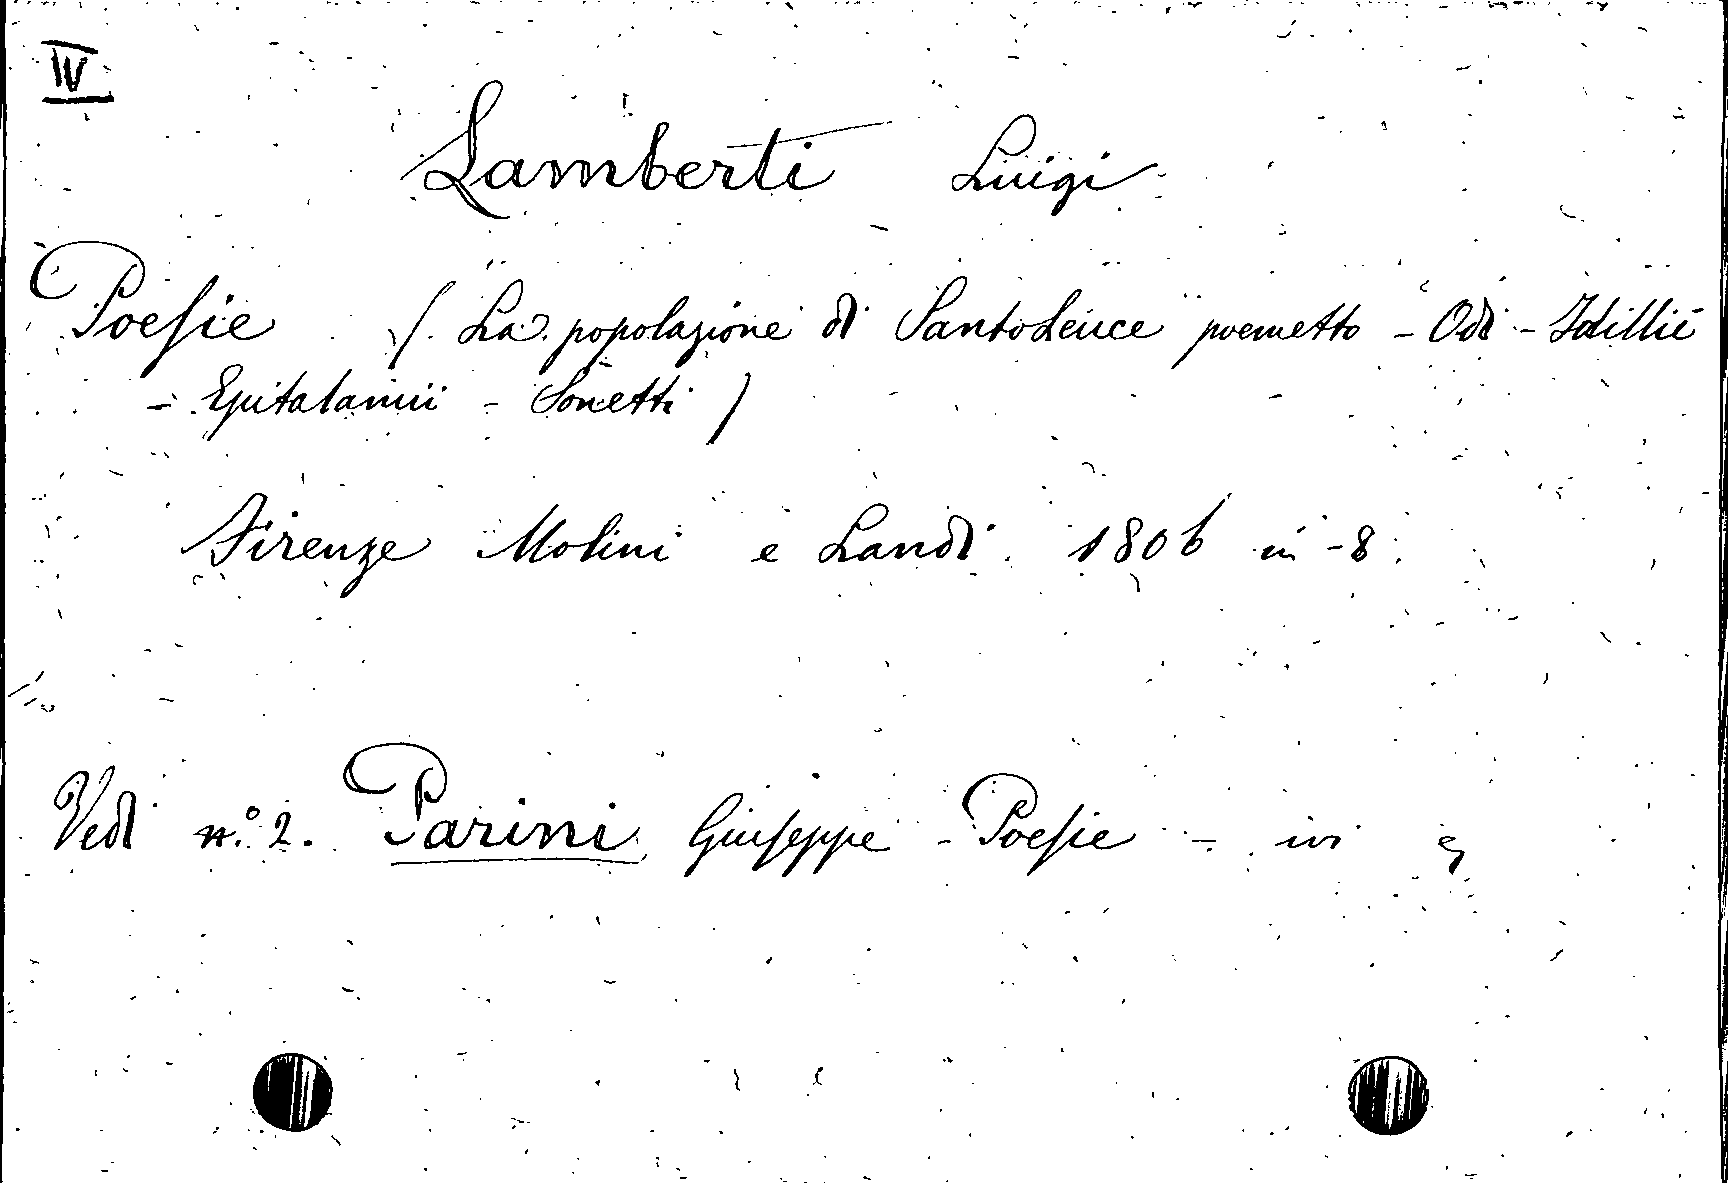 IV
Lamberti Luigi
Poesie (La popolazione di Santo Leuce poemetto - Odi - Idillii
- Epitalamii - Sonetti)
Firenze Molini e Landi. 1806 in-8.
Vedi n.° 2. Parini Giuseppe - Poesie - ivi